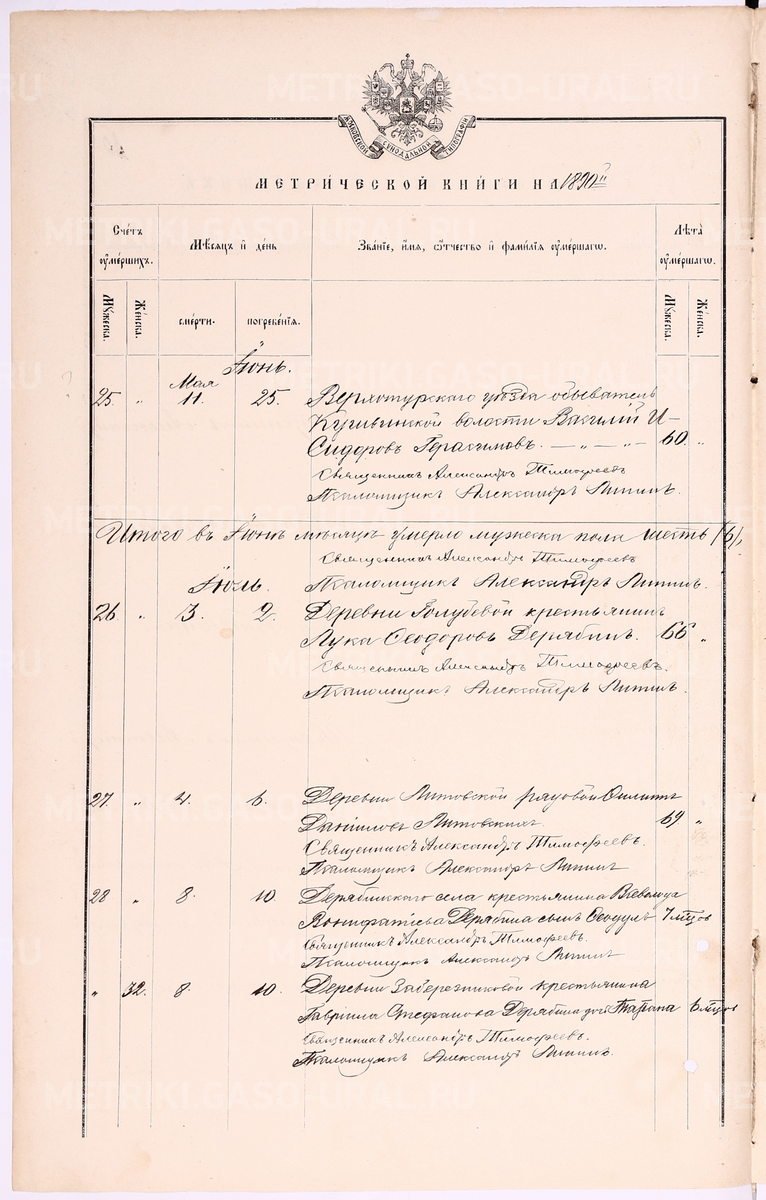 МОСКОВСКОЙ СѴНОДАЛЬНОЙ ТИПОГРАФІИ
МЕТРИЧЕСКОЙ КНИГИ НА 1890 й
Счетъ умершихъ. Мѣсяцъ и день Званіе, имя, отчество и фамилія умершаго. Лѣта умершаго.
Мужеска. Женска. смерти. погребенія. Мужеска. Женска.
Іюнь.
Мая
25. " 11. 25. Верхотурскаго уѣзда обыватель
Кушвинской волости Василій И-
сидоровъ Герасимовъ. — " — " — 60. "
Священникъ Александръ Тимофеевъ
Псаломщикъ Александръ
Итого въ Іюнѣ мѣсяцѣ умерло мужеска пола шесть /6/,
Священникъ Александръ Тимофеевъ
Іюль. Псаломщикъ Александръ
26 " 3. 2. Деревни Голубевой крестьянинъ
Лука Ѳеодоровъ Дерябинъ. 66 "
Священникъ Александръ Тимофеевъ.
Псаломщикъ Александръ
27. " 4. 6. Деревни Литовской рядовой Филиппъ
Даниловъ Литовскихъ 69 "
Священникъ Александръ Тимофеевъ.
Псаломщикъ Александръ
28 " 8. 10. Дерябинскаго села крестьянина Всеволода
Вонифатіева Дерябина сынъ Ѳеодулъ 7 мѣсцов
Священникъ Александръ Тимофеевъ.
Псаломщикъ Александръ
" 32. 8. 10. Деревни Заберезниковой крестьянина
Гавріила Стефанова Дерябина дочь 6 мѣсцов
Священникъ Александръ Тимофеевъ.
Псаломщикъ Александръ
METRIKI.GASO-URAL.RU